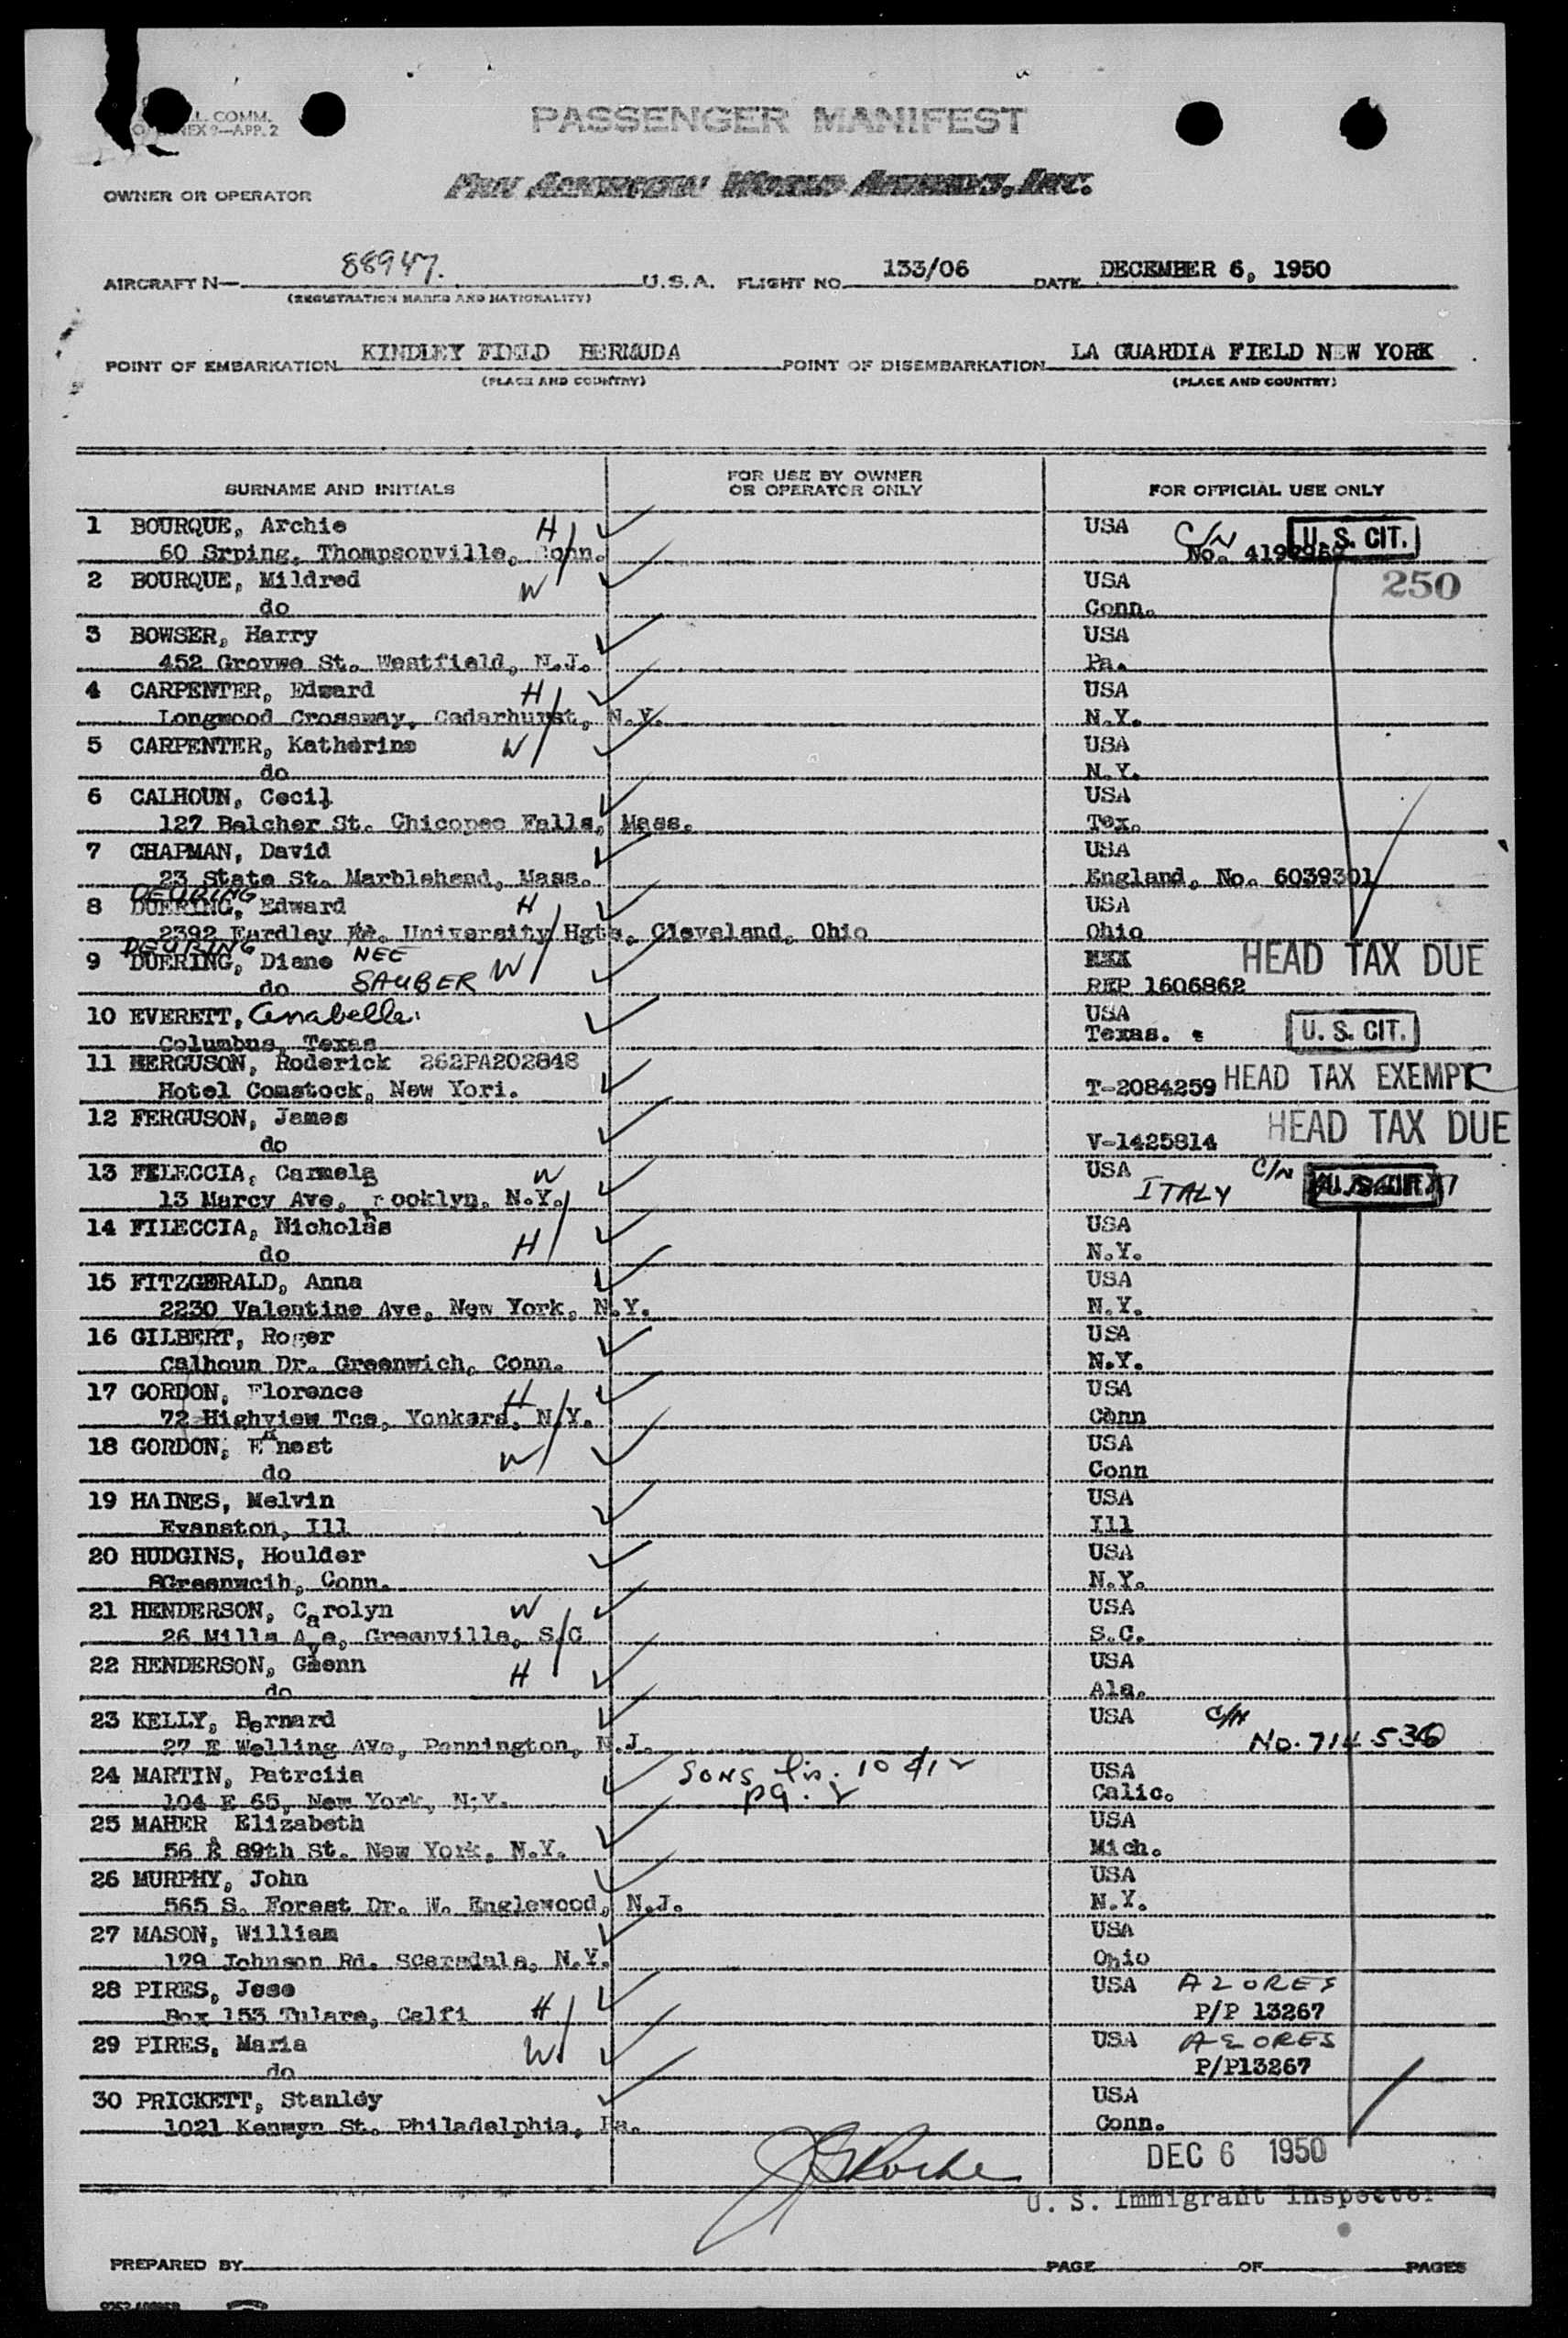 L. COMM.
NEX 9—APP. 2
PASSENGER MANIFEST
OWNER OR OPERATOR PAN AMERICAN WORLD AIRWAYS, INC.
AIRCRAFT N— 88947. U.S.A. FLIGHT NO. 133/06 DATE DECEMBER 6, 1950
(REGISTRATION MARKS AND NATIONALITY)
POINT OF EMBARKATION KINDLEY FIELD BERMUDA POINT OF DISEMBARKATION LA GUARDIA FIELD NEW YORK
(PLACE AND COUNTRY) (PLACE AND COUNTRY)
SURNAME AND INITIALS FOR USE BY OWNER OR OPERATOR ONLY FOR OFFICIAL USE ONLY
1 BOURQUE, Archie H USA C/N U. S. CIT.
60 Srping, Thompsonville, Conn. No.
2 BOURQUE, Mildred W USA 250
do Conn.
3 BOWSER, Harry USA
452 Grovwe St. Westfield, N.J. Pa.
4 CARPENTER, Edward H USA
Longwood Crossway, Cedarhurst, N.Y. N.Y.
5 CARPENTER, Katherine W USA
do N.Y.
6 CALHOUN, Cecil USA
127 Belcher St. Chicopee Falls, Mass. Tex.
7 CHAPMAN, David USA
23 State St. Marblehead, Mass. England, No. 6039301
DEURING
8 DUERING, Edward H USA
2392 Eardley Rd. University Hgts, Cleveland, Ohio Ohio
DEURING
9 DUERING, Diane NEE W HEAD TAX DUE
do SAUBER REP 1606862
10 EVERETT, Anabelle USA
Columbus, Texas Texas. U. S. CIT.
11 HERGUSON, Roderick 262PA202848
Hotel Comstock, New Yori. T-2084259 HEAD TAX EXEMPT
12 FERGUSON, James HEAD TAX DUE
do V-1425814
13 FELECCIA, Carmela W USA C/N
13 Marcy Ave, rooklyn, N.Y. ITALY
14 FILECCIA, Nicholas USA
do H N.Y.
15 FITZGERALD, Anna USA
2230 Valentine Ave, New York, N.Y. N.Y.
16 GILBERT, Roger USA
Calhoun Dr. Greenwich, Conn. N.Y.
17 GORDON, Florence H USA
72 Highview Tce, Yonkers, N.Y. Conn
18 GORDON, Ernest W USA
do Conn
19 HAINES, Melvin USA
Evanston, Ill Ill
20 HUDGINS, Houlder USA
8Greenwcih, Conn. N.Y.
21 HENDERSON, Carolyn W USA
26 Mills Ave, Greenville, S.C S.C.
22 HENDERSON, Glenn H USA
do Ala.
23 KELLY, Bernard USA C/N
27 E Welling AVe, Pennington, N.J. No.
24 MARTIN, Patrciia SONS lin. 10 & 12 USA
104 E 65, New York, N.Y. pg. 2 Calic.
25 MAHER Elizabeth USA
56 E 89th St. New York, N.Y. Mich.
26 MURPHY, John USA
565 S. Forest Dr. W. Englewood, N.J. N.Y.
27 MASON, William USA
179 Johnson Rd. Scarsdale, N.Y. Ohio
28 PIRES, Jose USA AZORES
Box 153 Tulare, Calfi H P/P 13267
29 PIRES, Maria W USA AZORES
do P/P13267
30 PRICKETT, Stanley USA
1021 Kenwyn St. Philadelphia, Pa. Conn.
DEC 6 1950
U. S. Immigrant Inspector
PREPARED BY PAGE OF PAGES